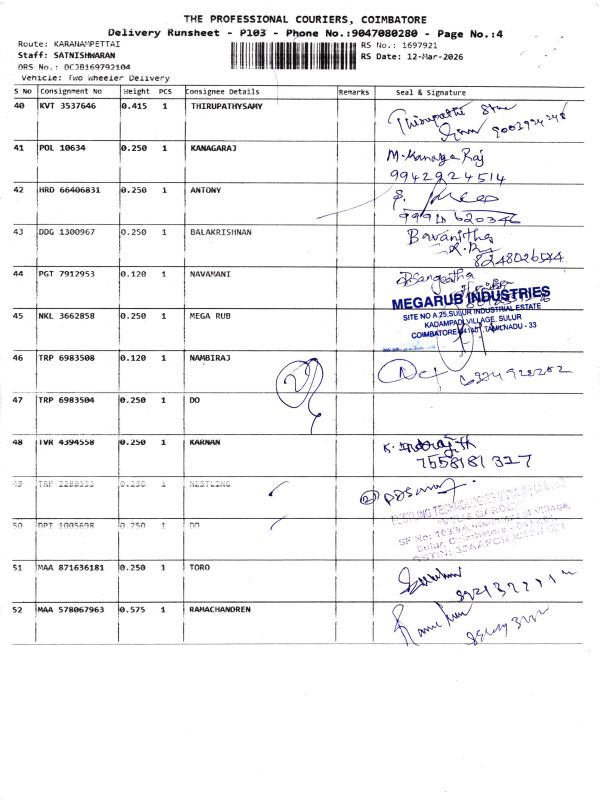 THE PROFESSIONAL COURIERS, COIMBATORE
Delivery Runsheet - P103 - Phone No.:9047080280 - Page No.:4
Route: KARANAMPETTAI
RS No.: 1697921
Staff: SATNISHWARAN
RS Date: 12-Mar-2026
DRS No.: DCJB169792104
Vehicle: Two Wheeler Delivery
S No Consignment No Height PCS Consignee Details Remarks Seal & Signature
40 KVT 3537646 0.415 1 THIRUPATHYSAMY
Thirupathi
41 POL 10634 0.250 1 KANAGARAJ
M.Kanaga Raj
9942924514
42 HRD 66406831 0.250 1 ANTONY
99910 620346
43 DDG 1300967 0.250 1 BALAKRISHNAN
Bavanitha
8248026544
44 PGT 7912953 0.120 1 NAVAMANI
Sangeetha
45 NKL 3662858 0.250 1 MEGA RUB
MEGARUB INDUSTRIES
SITE NO A 25, SULUR INDUSTRIAL ESTATE
KADAMPADI VILLAGE, SULUR
COIMBATORE TAMILNADU - 33
46 TRP 6983508 0.120 1 NAMBIRAJ
47 TRP 6983504 0.250 1 DO
48 TVR 4394558 0.250 1 KARNAN
K. Indrajith
7558181327
49 TRP 2288553 0.250 1 NESTLING
50 DPT 1005898 0.250 1 DO
51 MAA 871636181 0.250 1 TORO
52 MAA 578067963 0.575 1 RAMACHANDREN